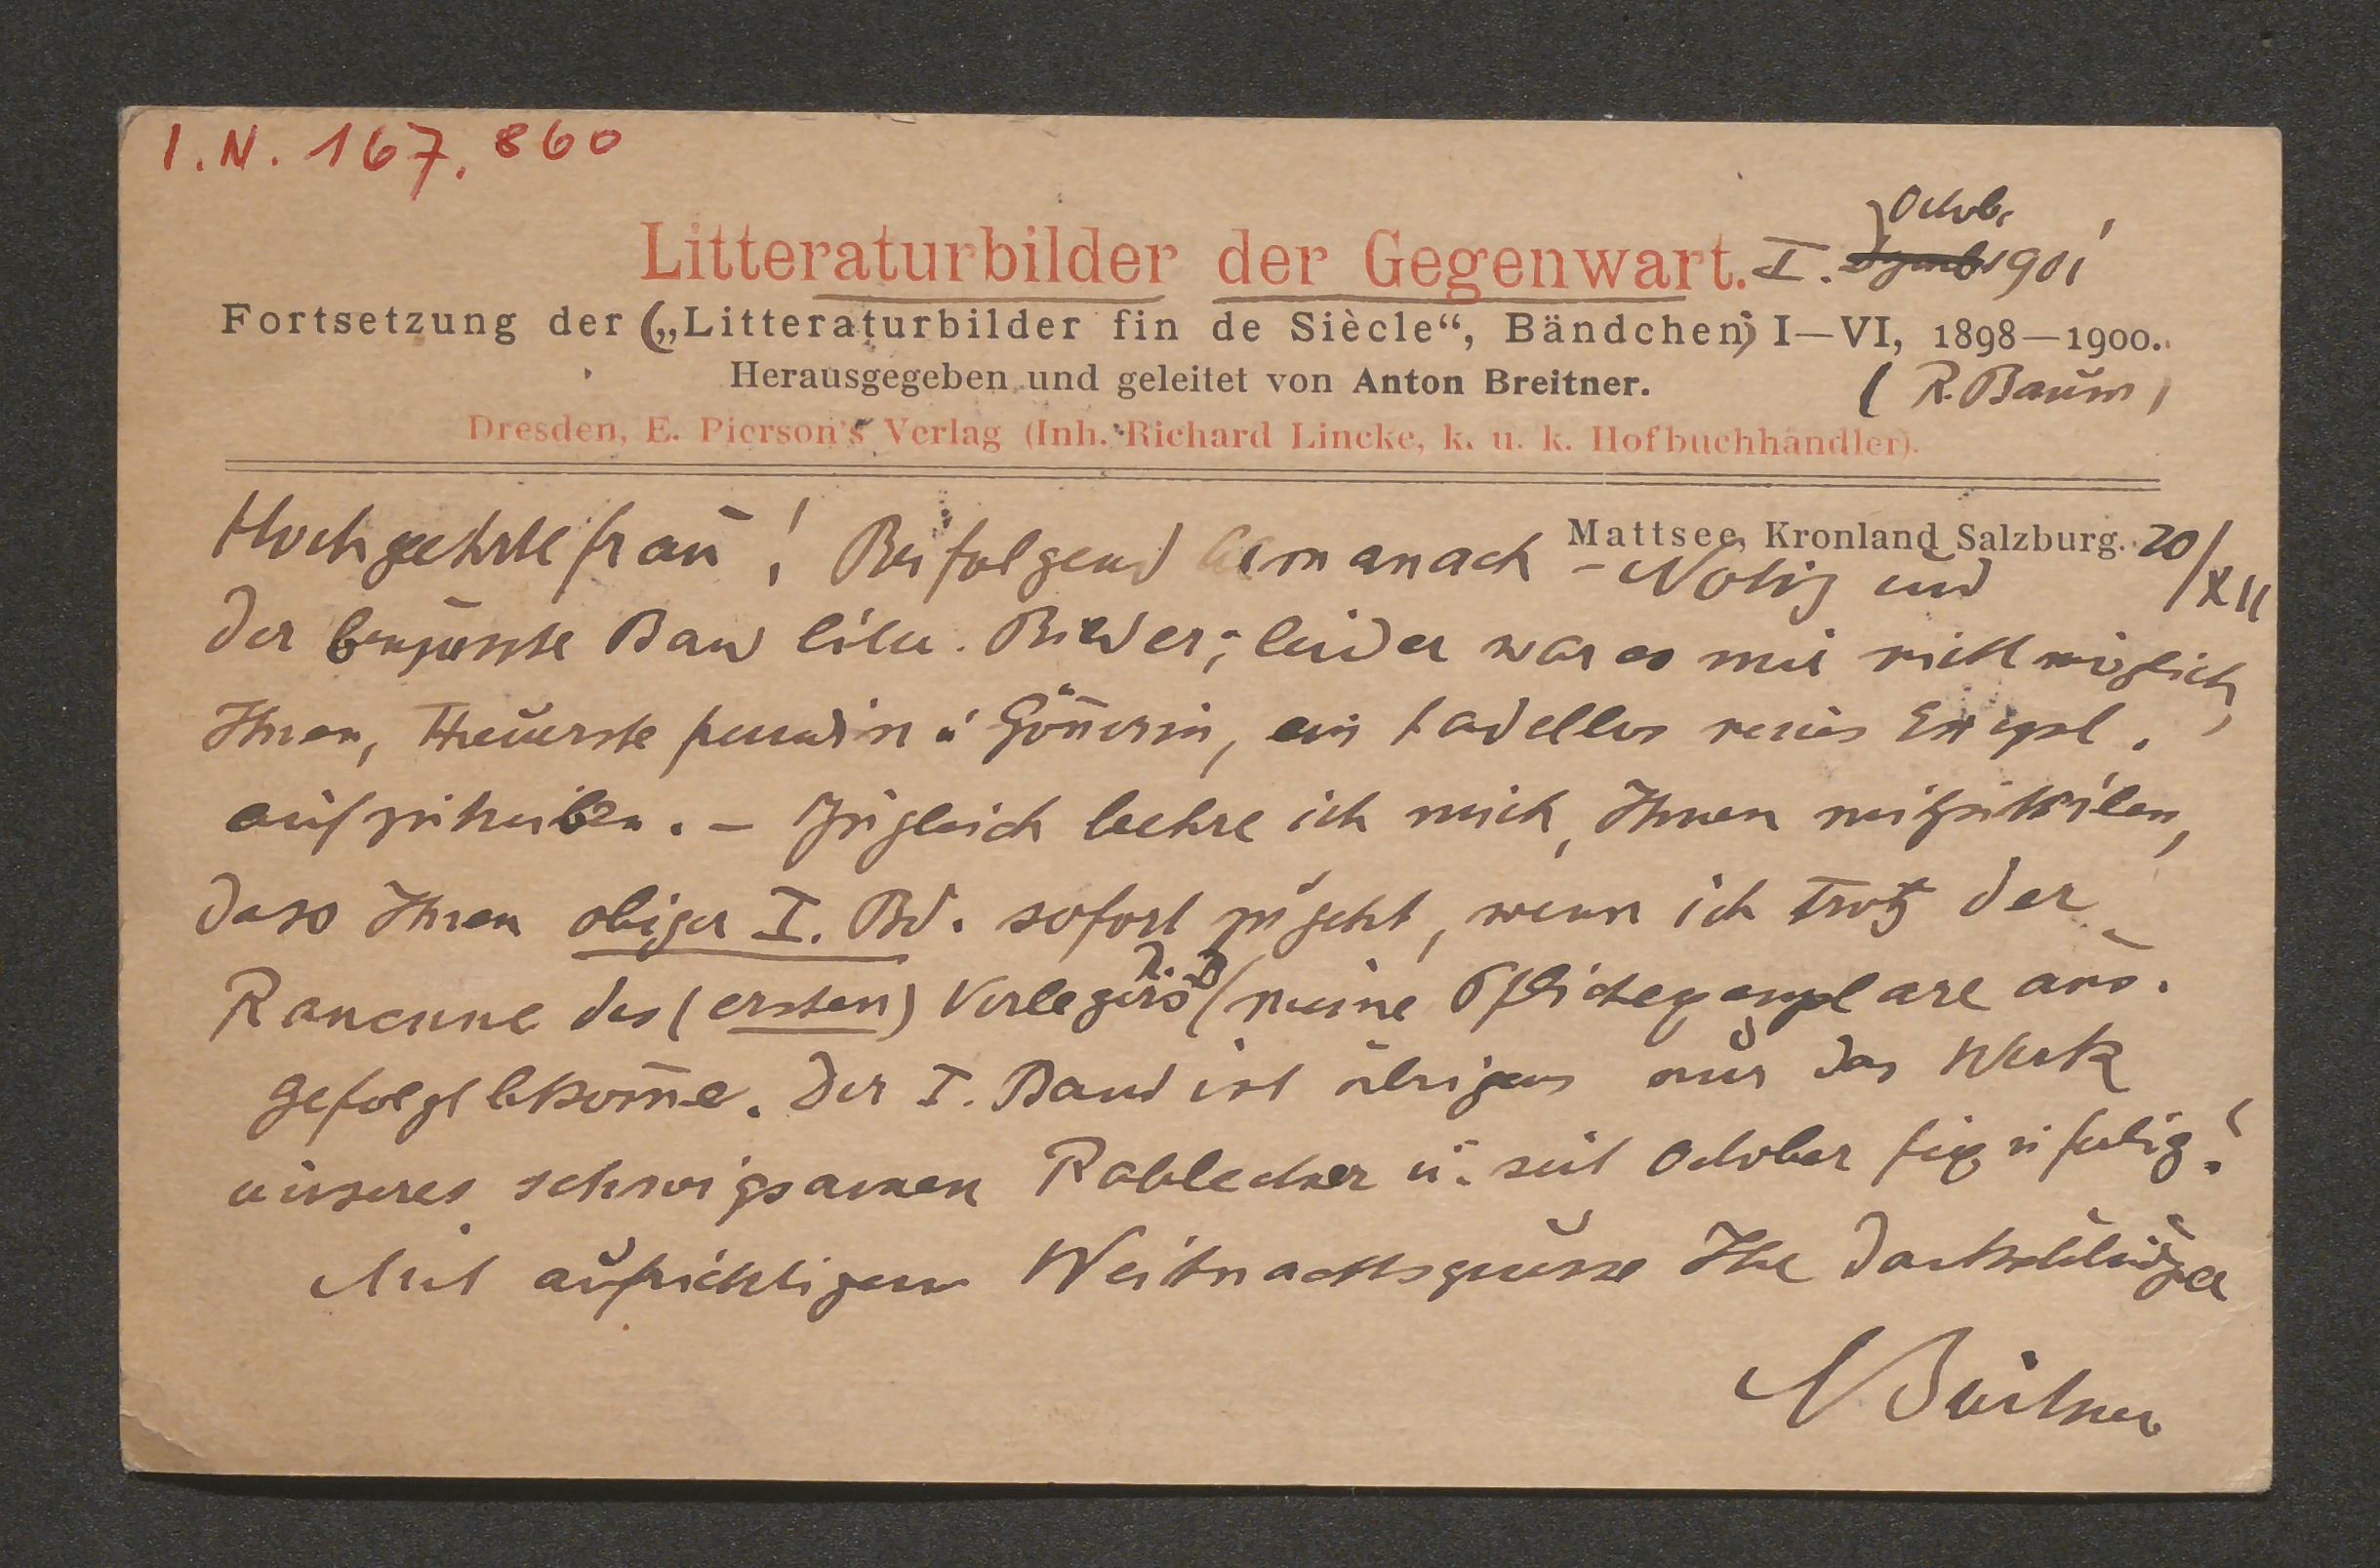 I.N. 167.860
Octob.
Litteraturbilder der Gegenwart. I. 1901
Fortsetzung der („Litteraturbilder fin de Siècle“, Bändchen) I—VI, 1898—1900.
Herausgegeben und geleitet von Anton Breitner. (R. Baum)
Dresden, E. Pierson's Verlag (Inh. Richard Lincke, k. u. k. Hofbuchhändler).
Mattsee, Kronland Salzburg. 20/XII
Hochgeehrte Frau! Beifolgend Almanach-Notiz und
der Band litter. Bilder; leider war es mir nicht möglich,
Ihnen, Theuerste Freundin u Gönnerin, ein tadellos neues Exempl.
aufzutreiben. – Zugleich beehre ich mich, Ihnen mitzutheilen,
dass Ihnen obiger I. Bd. sofort zugeht, wenn ich trotz der
Rancune des (ersten) Verlegers R. B (meine Pflichtexemplare aus-
gefolgt bekom̄e. Der I. Band ist übrigens nur das Werk
unseres schweigsamen Rablechner u. seit October fix u fertig!
Mit aufrichtigem Weihnachtsgrusse Ihr dankschuldiger
ABreitner